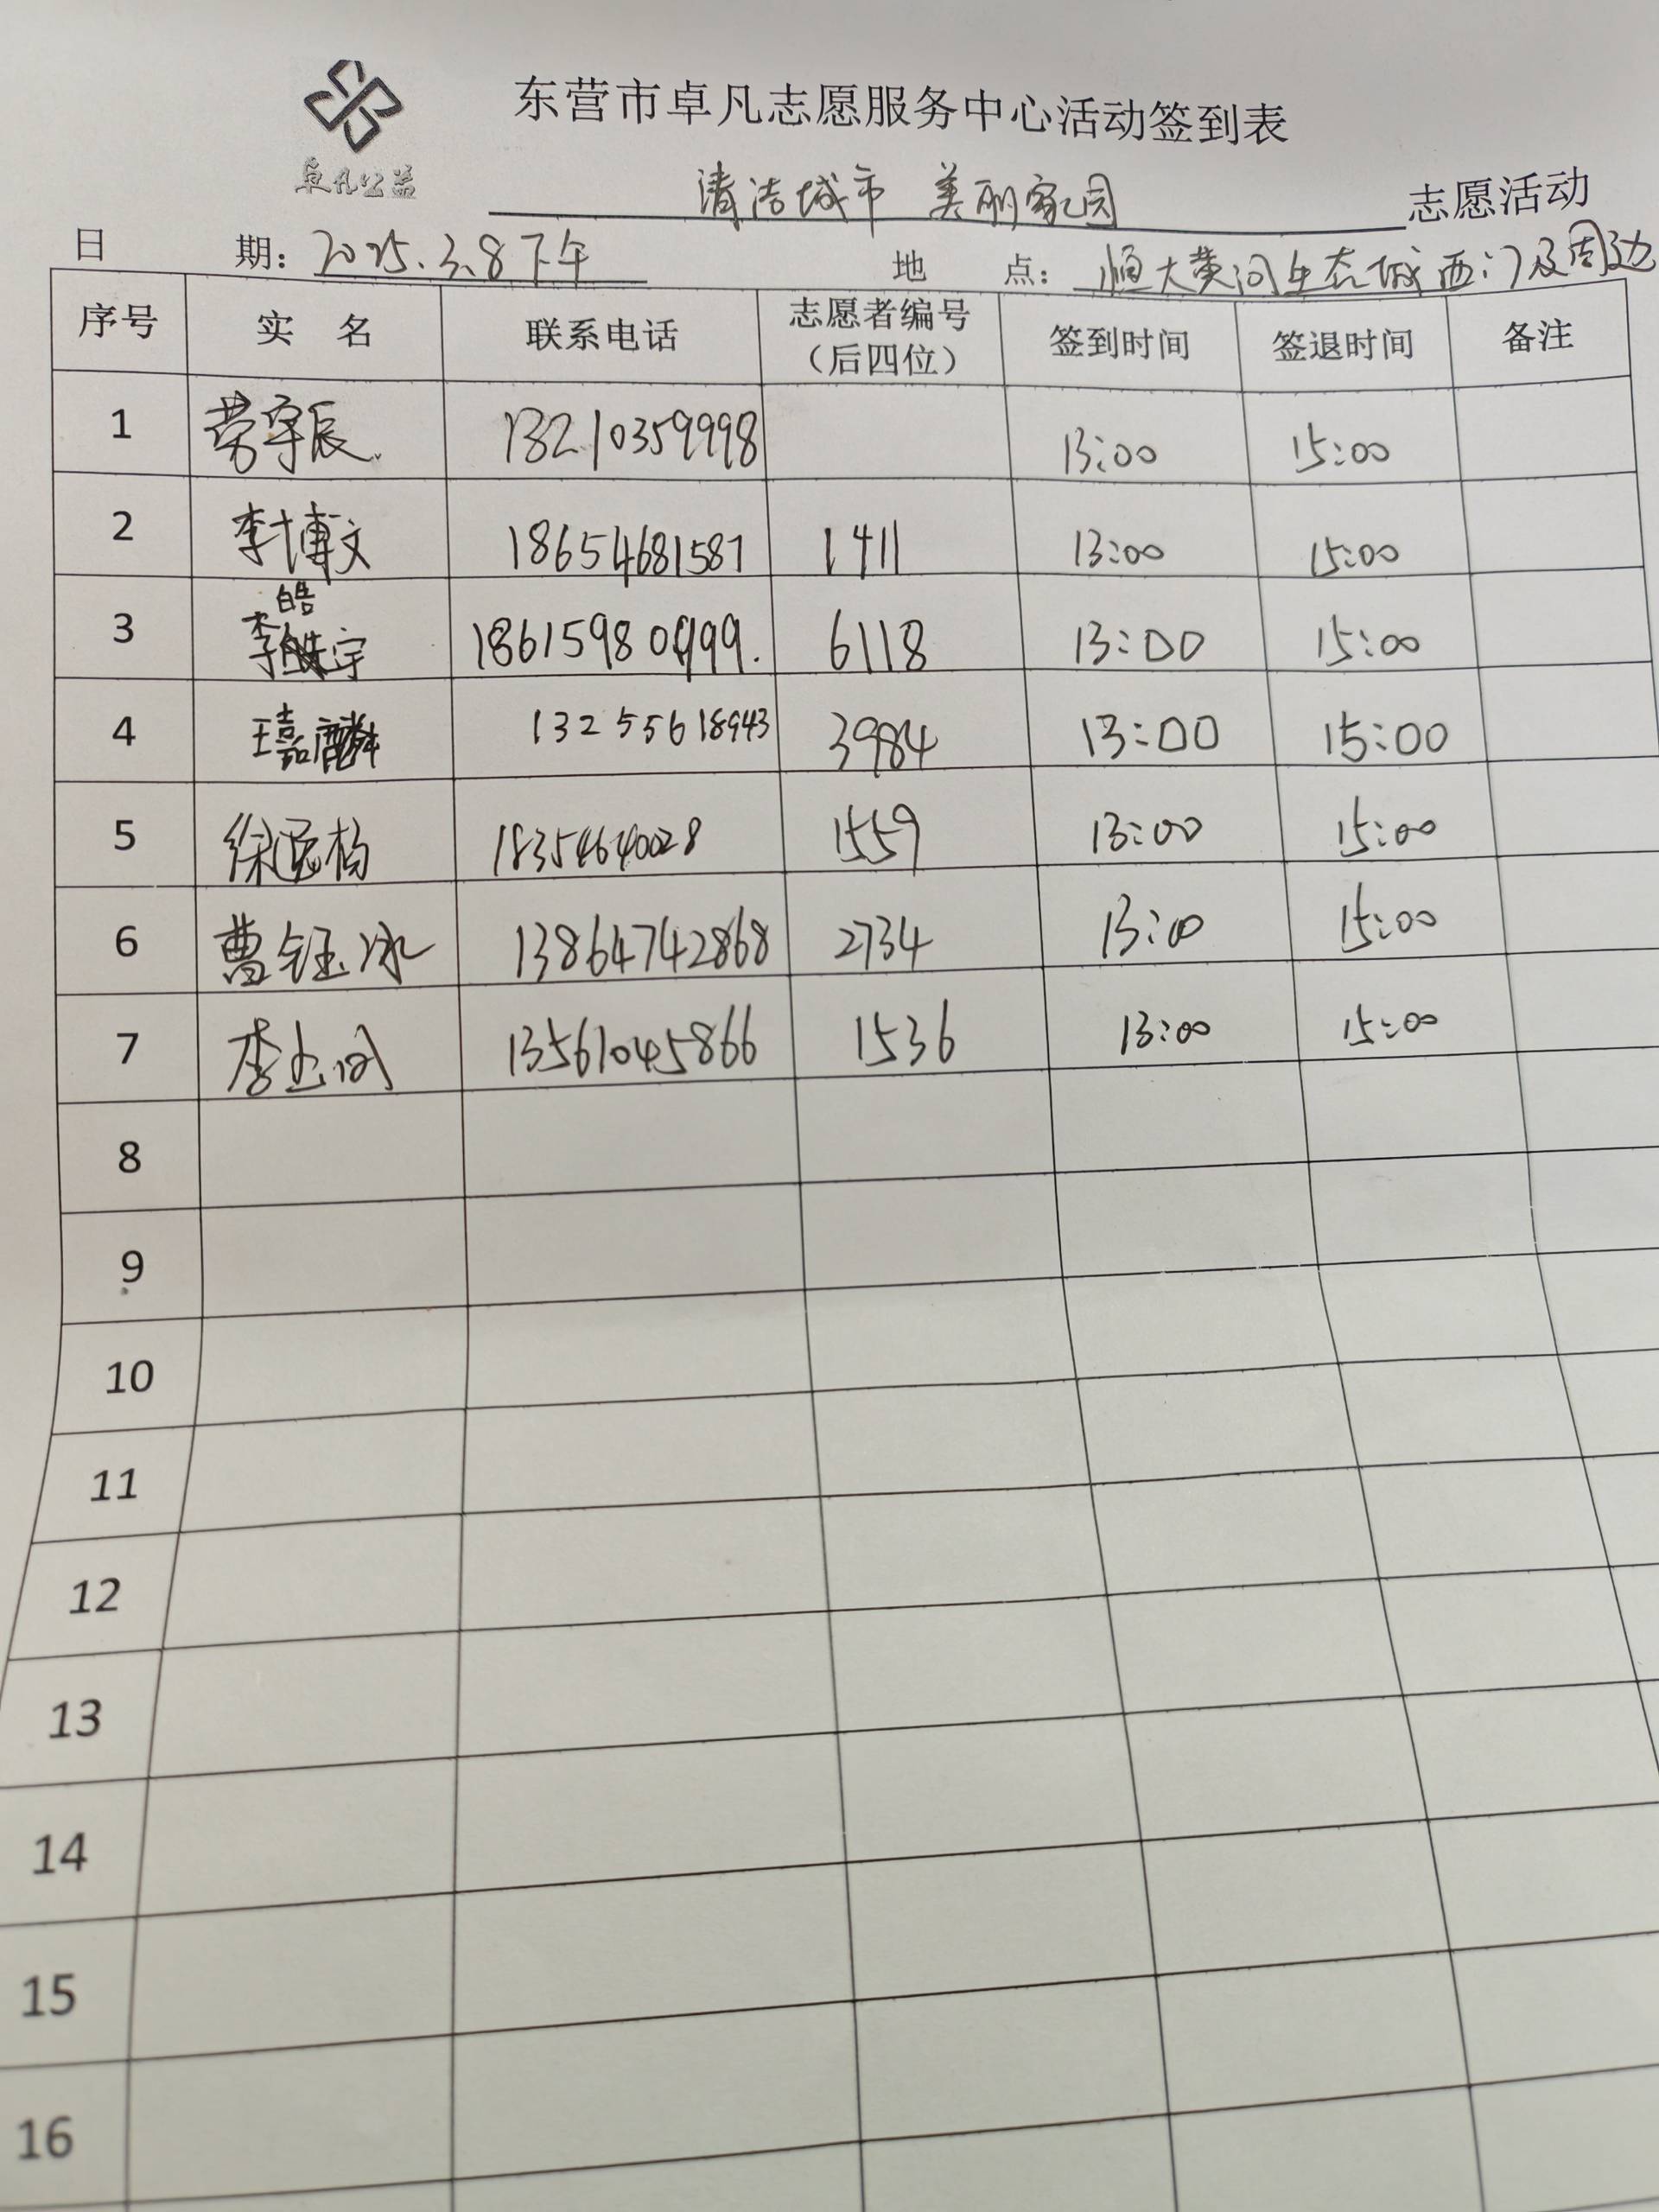 东营市卓凡志愿服务中心活动签到表
卓凡公益
清洁城市 美丽家园 志愿活动
日 期: 2025.3.8下午 地 点: 恒大黄河生态城西门及周边
序号 实 名 联系电话 志愿者编号（后四位） 签到时间 签退时间 备注
1 劳宇辰 13210359998 13:00 15:00
2 李博文 18654681587 1411 13:00 15:00
3 李皓宇 18615980999. 6118 13:00 15:00
4 王嘉麟 13255618943 3984 13:00 15:00
5 徐杨 18354640028 1559 13:00 15:00
6 曹钰冰 13864742868 2734 13:00 15:00
7 李 13561045866 1536 13:00 15:00
8
9
10
11
12
13
14
15
16